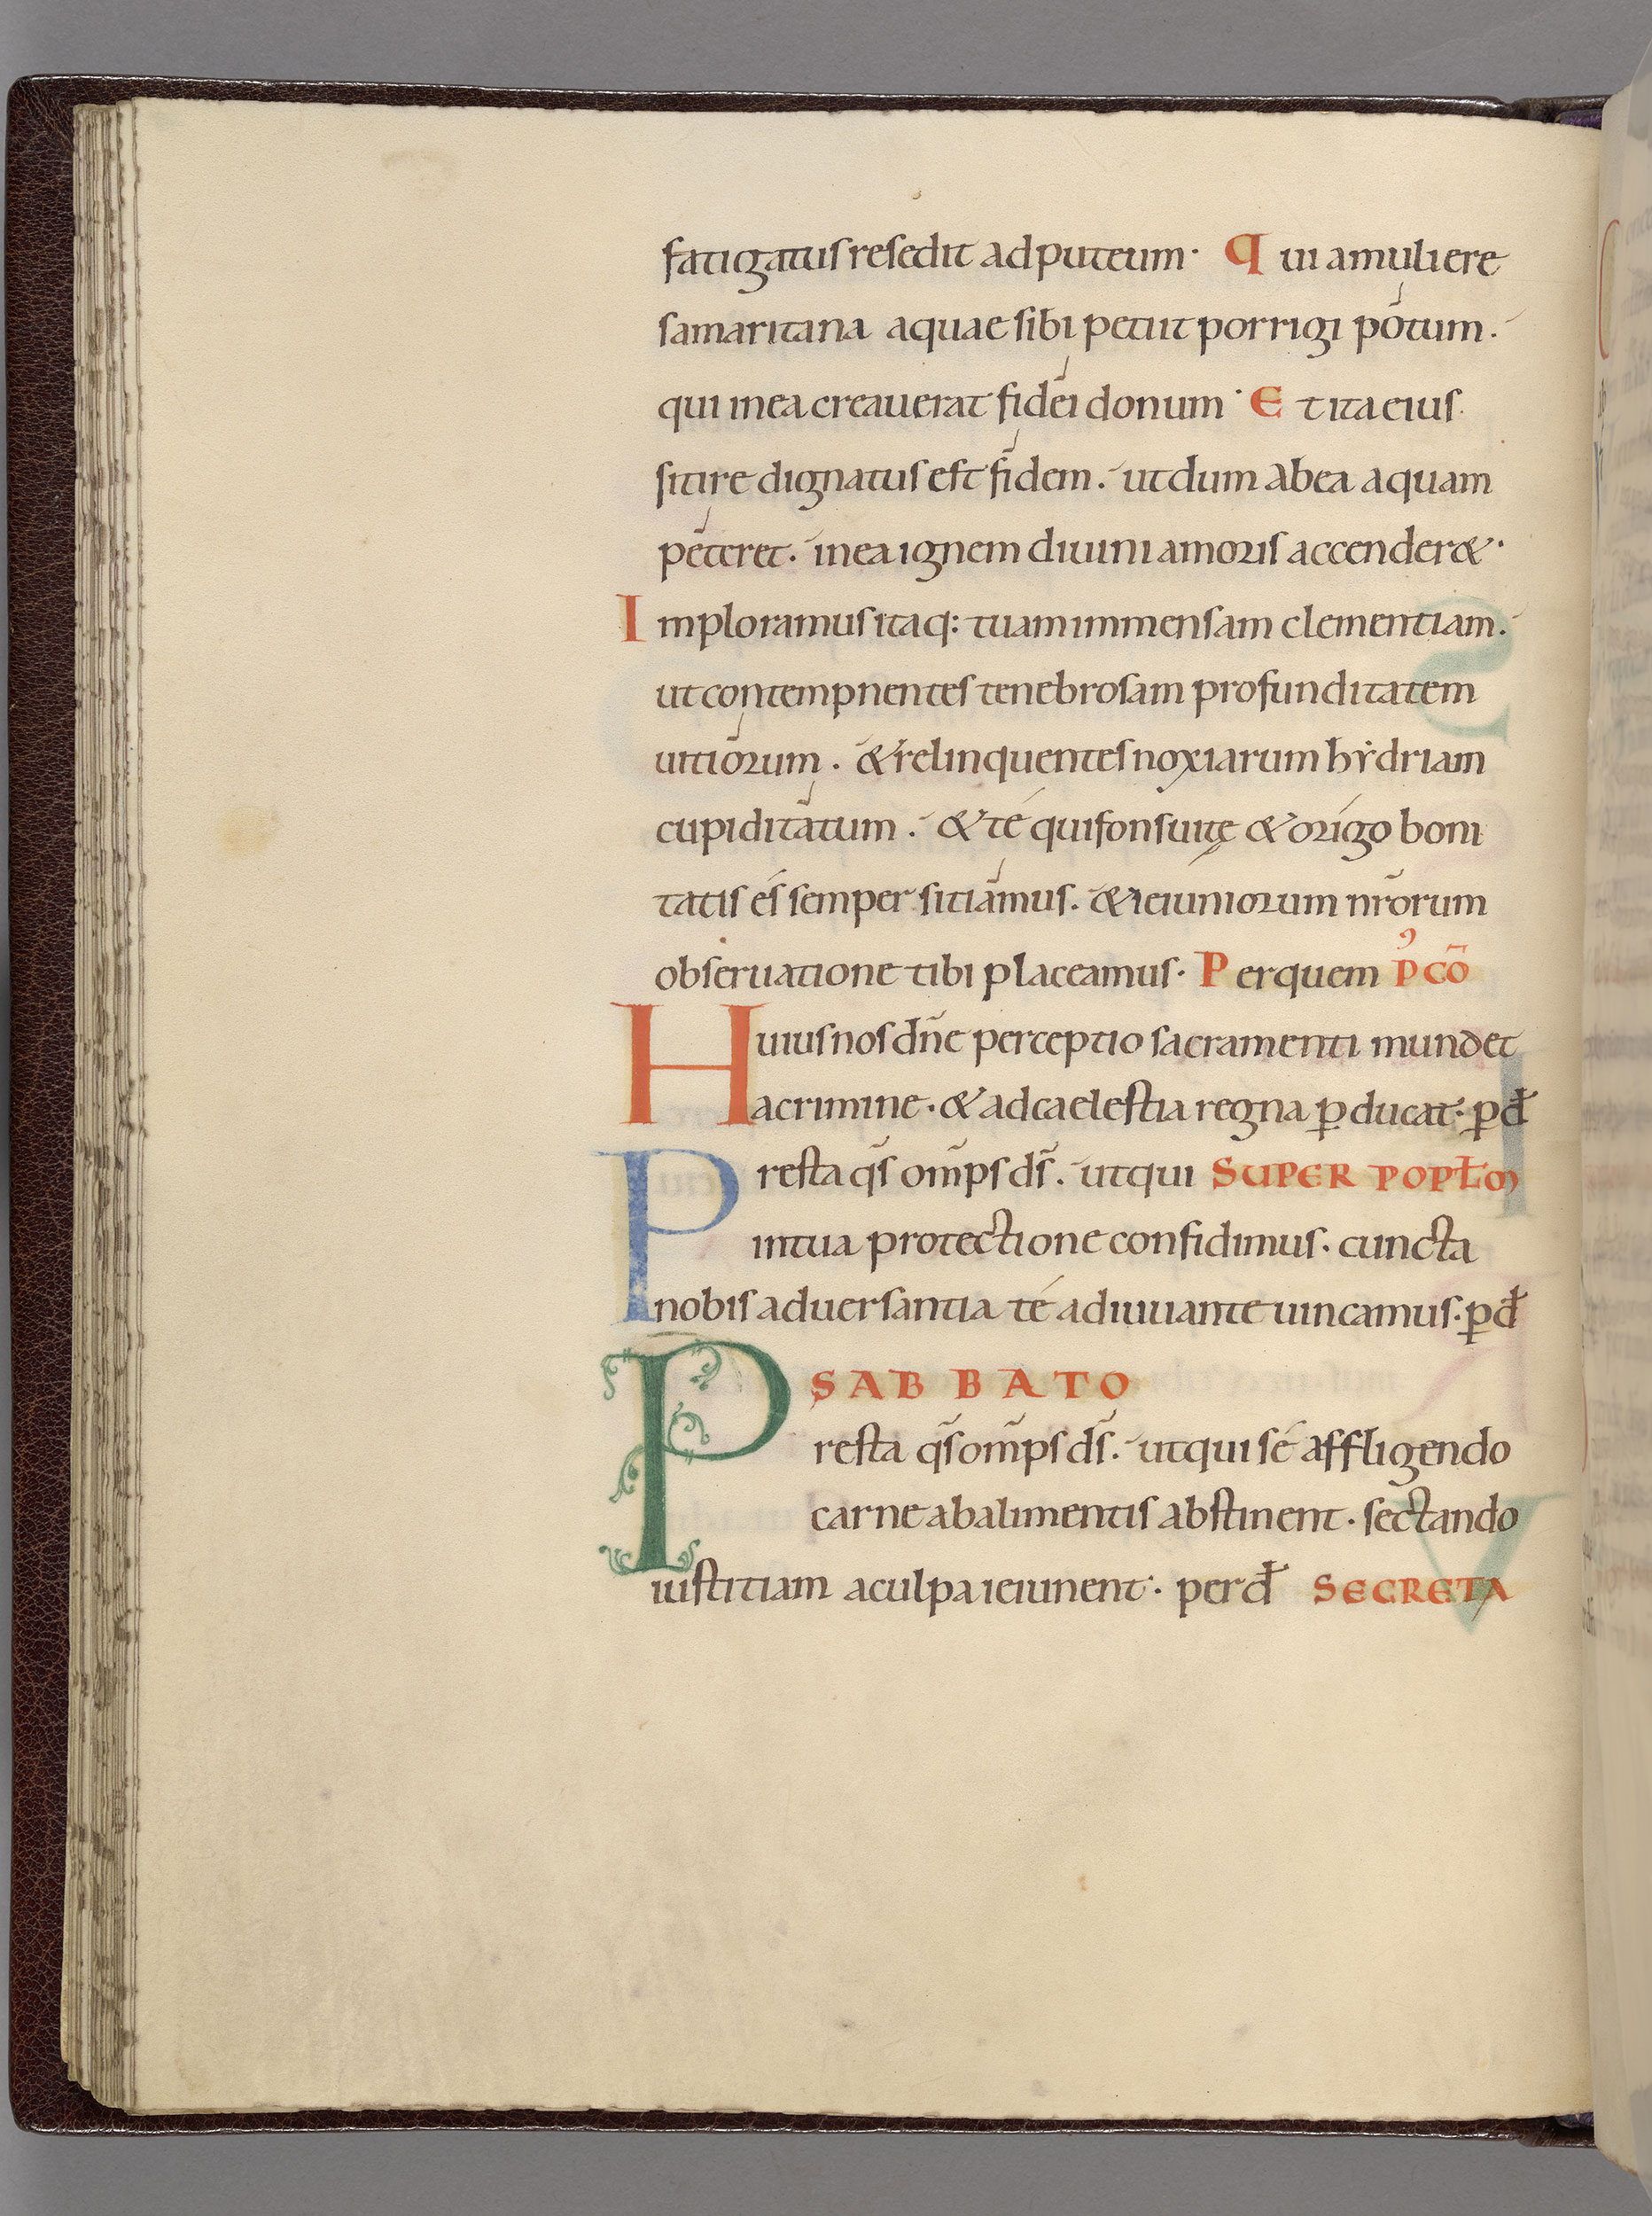 fatigatus resedit ad puteum· Qui a muliere
samaritana aquae sibi petiit porrigi pótum.
qui in ea creauerat fidei donum· Et ita eius
sitire dignatus est fidem. ut dum ab ea aquam
péteret. in ea ignem diuini amoris accender&·
Imploramus itaq: tuam immensam clementiam.
ut contempnentes tenebrosam profunditatem
uitiórum. & relinquentes noxiarum hẏdriam
cupiditátum. & té qui fons uitę & orígo boni
tatis és semper sitiámus. & ieiuniorum nr̄orum
obseruatione tibi placeamus· Per quem pꝰcō
Huius nos dn̄e perceptio sacramenti mundet
a crimine· & ad caelestia regna ꝑducat· ꝑ đ
Presta qs̄ om̄ps ds̄. ut qui SUPER POPŁM
in tua protectione confidimus· cuncta
nobis aduersantia té adiuuante uincamus· ꝑ đ
SABBATO
Presta qs̄ om̄ps ds̄. ut qui sé affligendo
carne ab alimentis abstinent· sectando
iustitiam a culpa ieiunent· per đ SECRETA